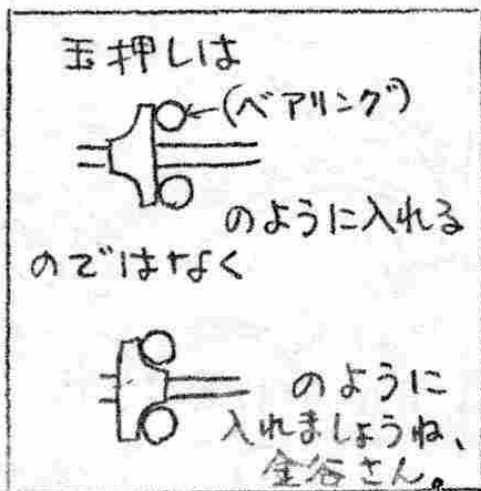 玉押しは
←(ベアリング)
のように入れる
のではなく
のように
入れましょうね、
金谷さん。